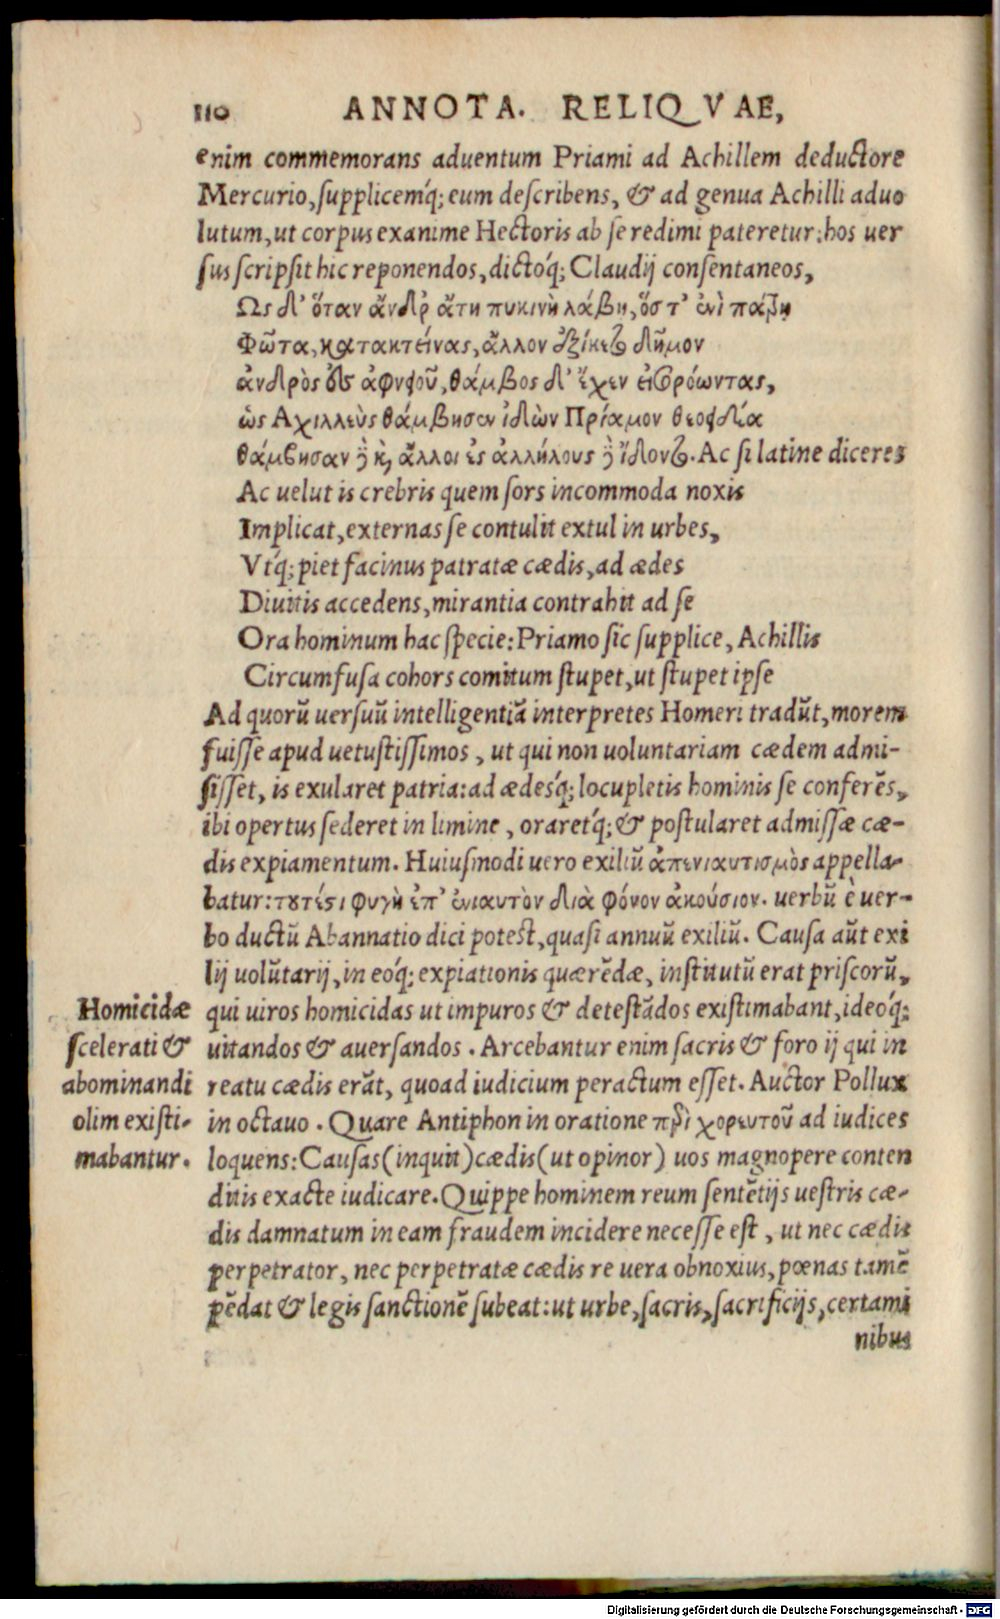 110 ANNOTA. RELIQVAE,
enim commemorans aduentum Priami ad Achillem deductore
Mercurio, supplicemq́; eum describens, & ad genua Achilli aduo
lutum, ut corpus exanime Hectoris ab se redimi pateretur: hos uer
sus scripsit hic reponendos, dictoq́; Claudij consentaneos,
Ως δ' ὅταν ἄνδρ ἄτη πυκινὴ λάβη, ὅστ' ἐνὶ πάτρη
Φῶτα, κατακτείνας, ἄλλον ἐξίκετο δῆμον
ἀνδρὸς ἐς ἀφνφοῦ, θάμβος δ' ἔχεν εἰσορόωντας,
ὡς Αχιλλεὺς θάμβησεν ἰδὼν Πρίαμον θεοφδέα
θάμβησαν ἢ κὶ, ἄλλοι ἐς ἀλλήλους ἢ ἴδοντο. Ac si latine diceres
Ac uelut is crebris quem sors incommoda noxis
Implicat, externas se contulit extul in urbes,
Vtq́; piet facinus patratæ cædis, ad ædes
Diuitis accedens, mirantia contrahit ad se
Ora hominum hac specie: Priamo sic supplice, Achillis
Circumfusa cohors comitum stupet, ut stupet ipse
Ad quorũ uersuũ intelligentiã interpretes Homeri tradũt, morem
fuisse apud uetustissimos, ut qui non uoluntariam cædem admi-
sisset, is exularet patria: ad ædesq́; locupletis hominis se conferẽs,
ibi opertus sederet in limine, oraretq́; & postularet admissæ cæ-
dis expiamentum. Huiusmodi uero exiliũ ἀπενιαυτισμὸς appella-
batur: τουτέστι φυγὴ ἐπ' ἐνιαυτὸν διὰ φόνον ἀκούσιον. uerbũ è uer-
bo ductũ Abannatio dici potest, quasi annuũ exiliũ. Causa aũt exi
lij uolũtarij, in eoq́; expiationis quærẽdæ, institutũ erat priscorũ,
qui uiros homicidas ut impuros & detestãdos existimabant, ideoq́;
uitandos & auersandos. Arcebantur enim sacris & foro ij qui in
reatu cædis erãt, quoad iudicium peractum esset. Auctor Pollux
in octauo. Quare Antiphon in oratione πρὶ χορευτοῦ ad iudices
loquens: Causas (inquit) cædis (ut opinor) uos magnopere conten
ditis exacte iudicare. Quippe hominem reum sentẽtijs uestris cæ-
dis damnatum in eam fraudem incidere necesse est, ut nec cædis
perpetrator, nec perpetratæ cædis re uera obnoxius, pœnas tamẽ
pẽdat & legis sanctionẽ subeat: ut urbe, sacris, sacrificijs, certami
nibus
Homicidæ
scelerati &
abominandi
olim existi-
mabantur.
Digitalisierung gefördert durch die Deutsche Forschungsgemeinschaft - DFG